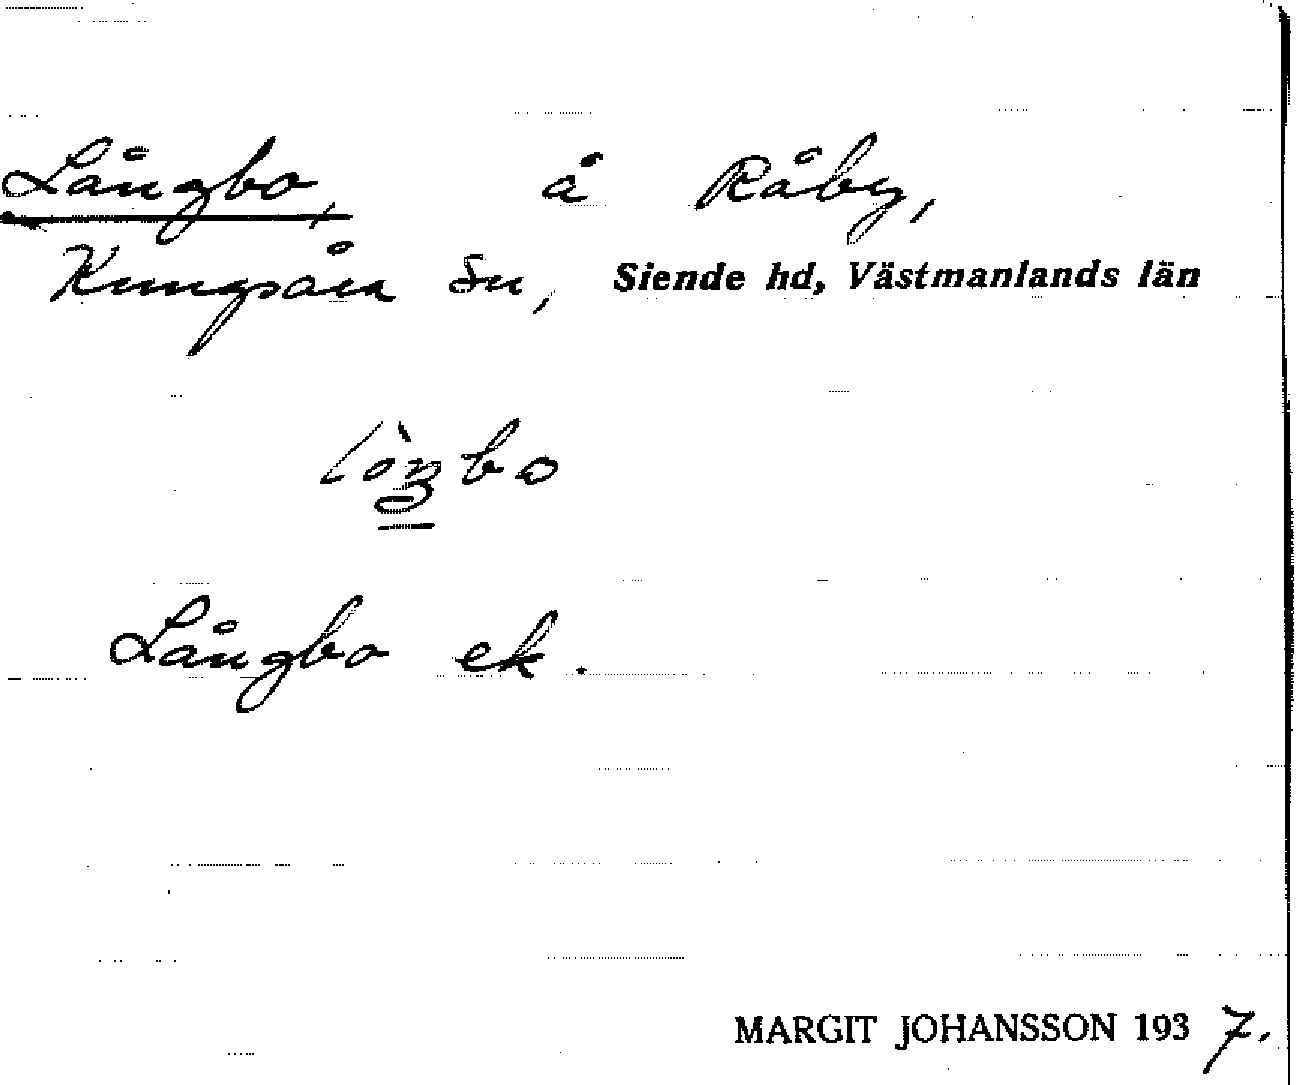 Långbo, å Råby,
Kungsåra sn, Siende hd, Västmanlands län
Långbo ek.
MARGIT JOHANSSON 1937.